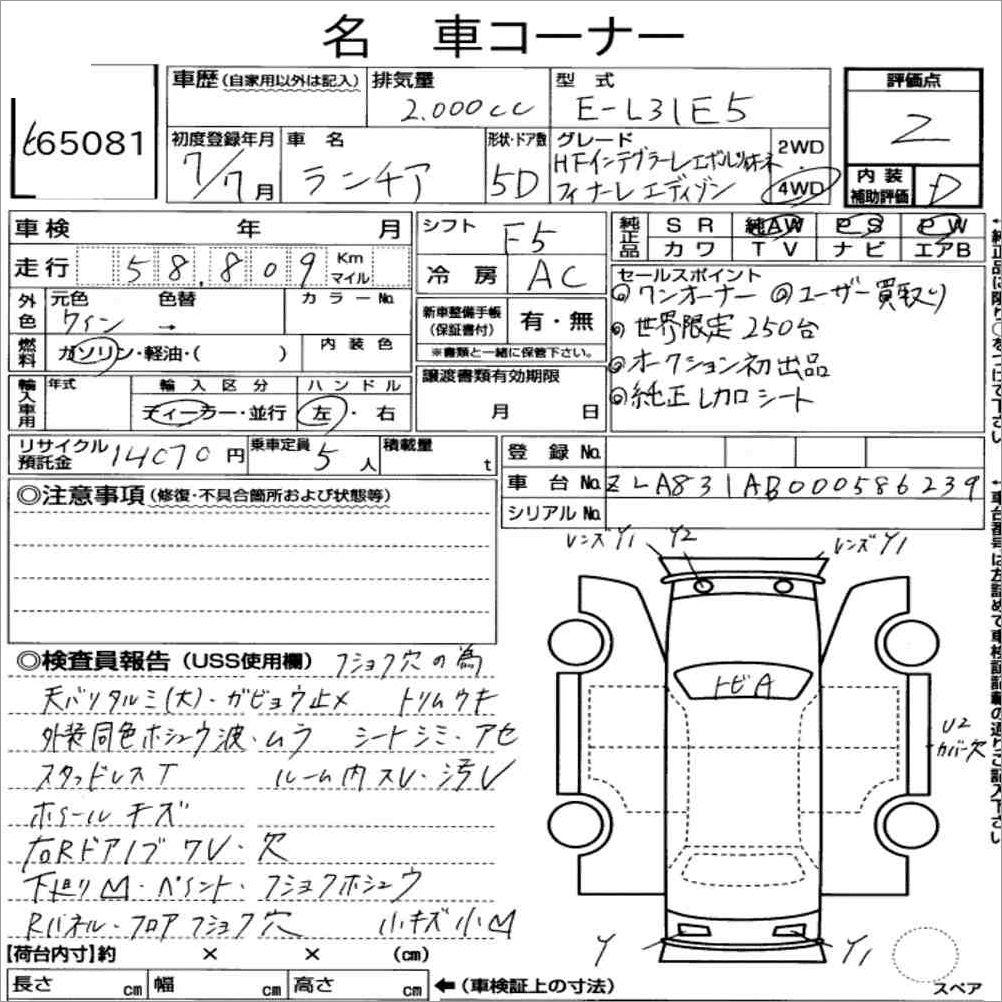 名 車コーナー
65081
車歴(自家用以外は記入) 排気量 2.000cc 型式 E-L31E5 評価点 2
初度登録年月 7/7月 車名 ランチア 形状・ドア数 5D グレード HFインテグラーレエボルツィオーネ フィナーレエディション 2WD 4WD
内装補助評価 D
車検 年 月 シフト F5 純正品 SR 純AW PS PW
カワ TV ナビ エアB
走行 58,809 Km マイル 冷房 AC
セールスポイント
◎ワンオーナー ◎ユーザー買取り
◎世界限定250台
◎オークション初出品
◎純正レカロシート
外色 元色 ワイン 色替 → カラーNo.
新車整備手帳(保証書付) 有・無
※書類と一緒に保管下さい。
燃料 ガソリン・軽油・( ) 内装色
譲渡書類有効期限 月 日
輸入車用 年式 輸入区分 ディーラー・並行 ハンドル 左・右
リサイクル預託金 14070円 乗車定員 5人 積載量 t
登録No.
車台No. ZLA831AB000586239
シリアルNo.
◎注意事項(修復・不具合箇所および状態等)
レンズY1 Y2 レンズY1
トビA
U2
カバー欠
Y Y1
スペア
◎検査員報告(USS使用欄) フショク穴の為
天バリタルミ(大)・ガビョウ止メ トリムウキ
外装同色ホシュウ波・ムラ シートシミ・アセ
スタッドレスT ルーム内スレ・汚レ
ホイールキズ
右Rドアノブワレ・欠
下廻りM・ペイント・フショクホシュウ
Rパネル・フロアフショク穴 小キズ小M
【荷台内寸】約 × × (cm)
長さ cm 幅 cm 高さ cm ←(車検証上の寸法)
↑純正品に限り○をつけて下さい
↑車台番号は左詰めで車検証記載の通りご記入下さい